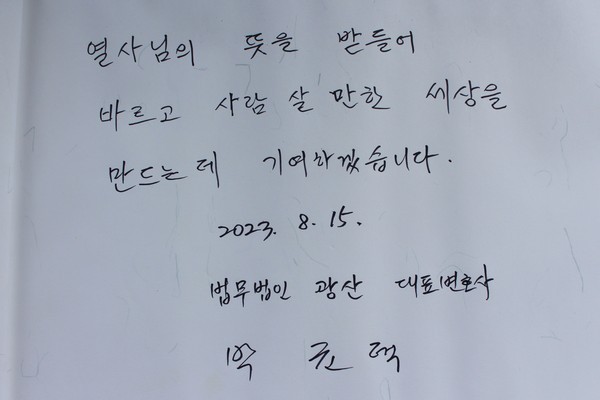 열사님의 뜻을 받들어
바르고 사람 살 만한 세상을
만드는데 기여하겠습니다.
2023. 8. 15.
법무법인 광산 대표변호사
택